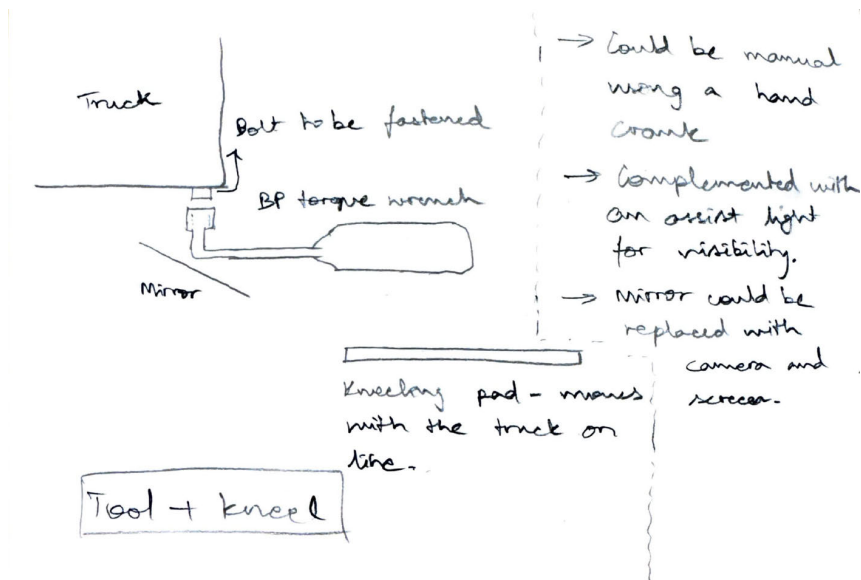 Truck
Bolt to be fastened
BP torque wrench
Mirror
Kneeling pad - moves
with the truck on
line.
Tool + kneel
→ Could be manual
using a hand
crank
→ Complemented with
an assist light
for visibility.
→ Mirror could be
replaced with
camera and
screen.